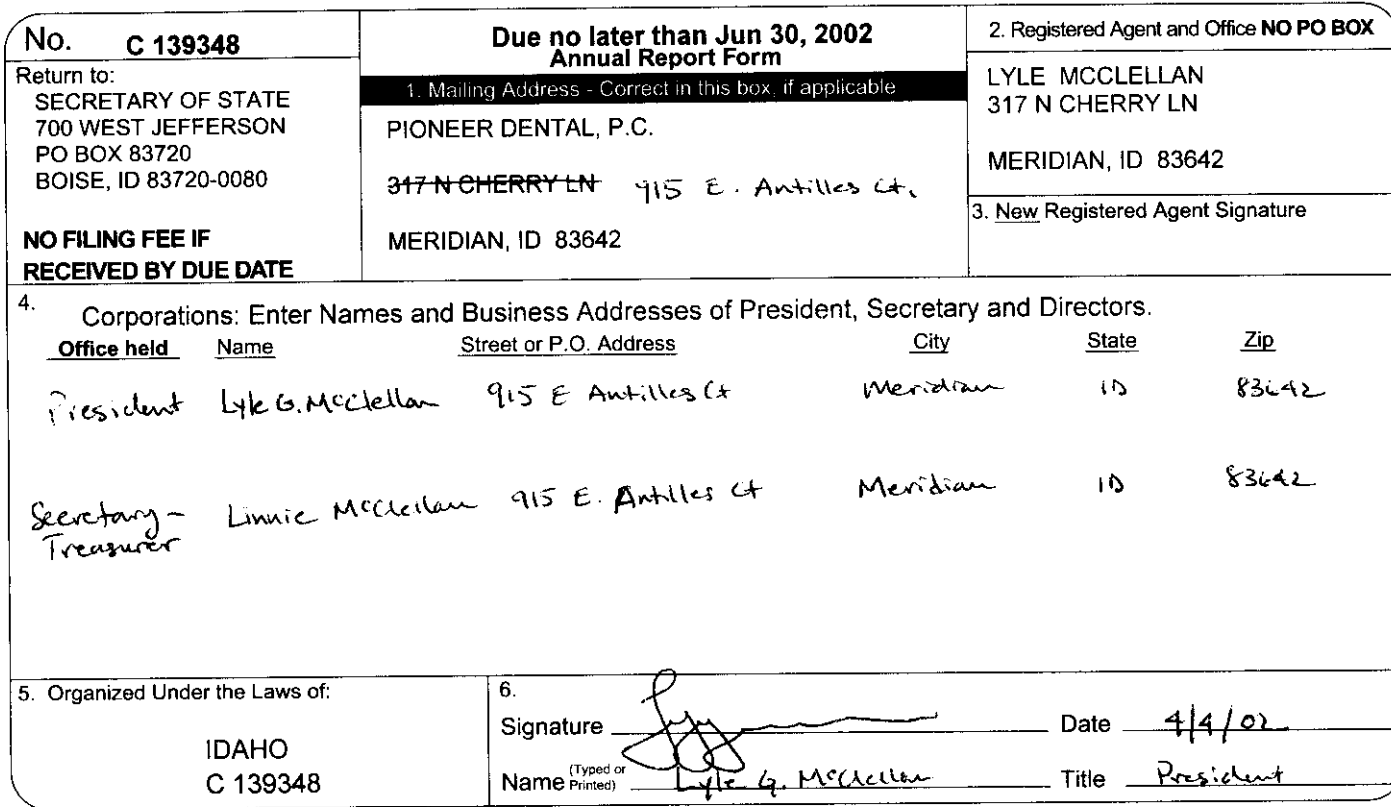 No. C 139348
Return to:
SECRETARY OF STATE
700 WEST JEFFERSON
PO BOX 83720
BOISE, ID 83720-0080
NO FILING FEE IF
RECEIVED BY DUE DATE
Due no later than Jun 30, 2002
Annual Report Form
1. Mailing Address - Correct in this box, if applicable
PIONEER DENTAL, P.C.
317 N CHERRY LN 915 E. Antilles Ct.
MERIDIAN, ID 83642
2. Registered Agent and Office NO PO BOX
LYLE MCCLELLAN
317 N CHERRY LN
MERIDIAN, ID 83642
3. New Registered Agent Signature
4. Corporations: Enter Names and Business Addresses of President, Secretary and Directors.
Office held Name Street or P.O. Address City State Zip
President Lyle G. McClellan 915 E Antilles Ct Meridian ID 83642
Secretary- Linnie McClellan 915 E. Antilles Ct Meridian ID 83642
Treasurer
5. Organized Under the Laws of:
IDAHO
C 139348
6.
Signature Date 4/4/02
Name (Typed or Printed) Lyle G. McClellan Title President